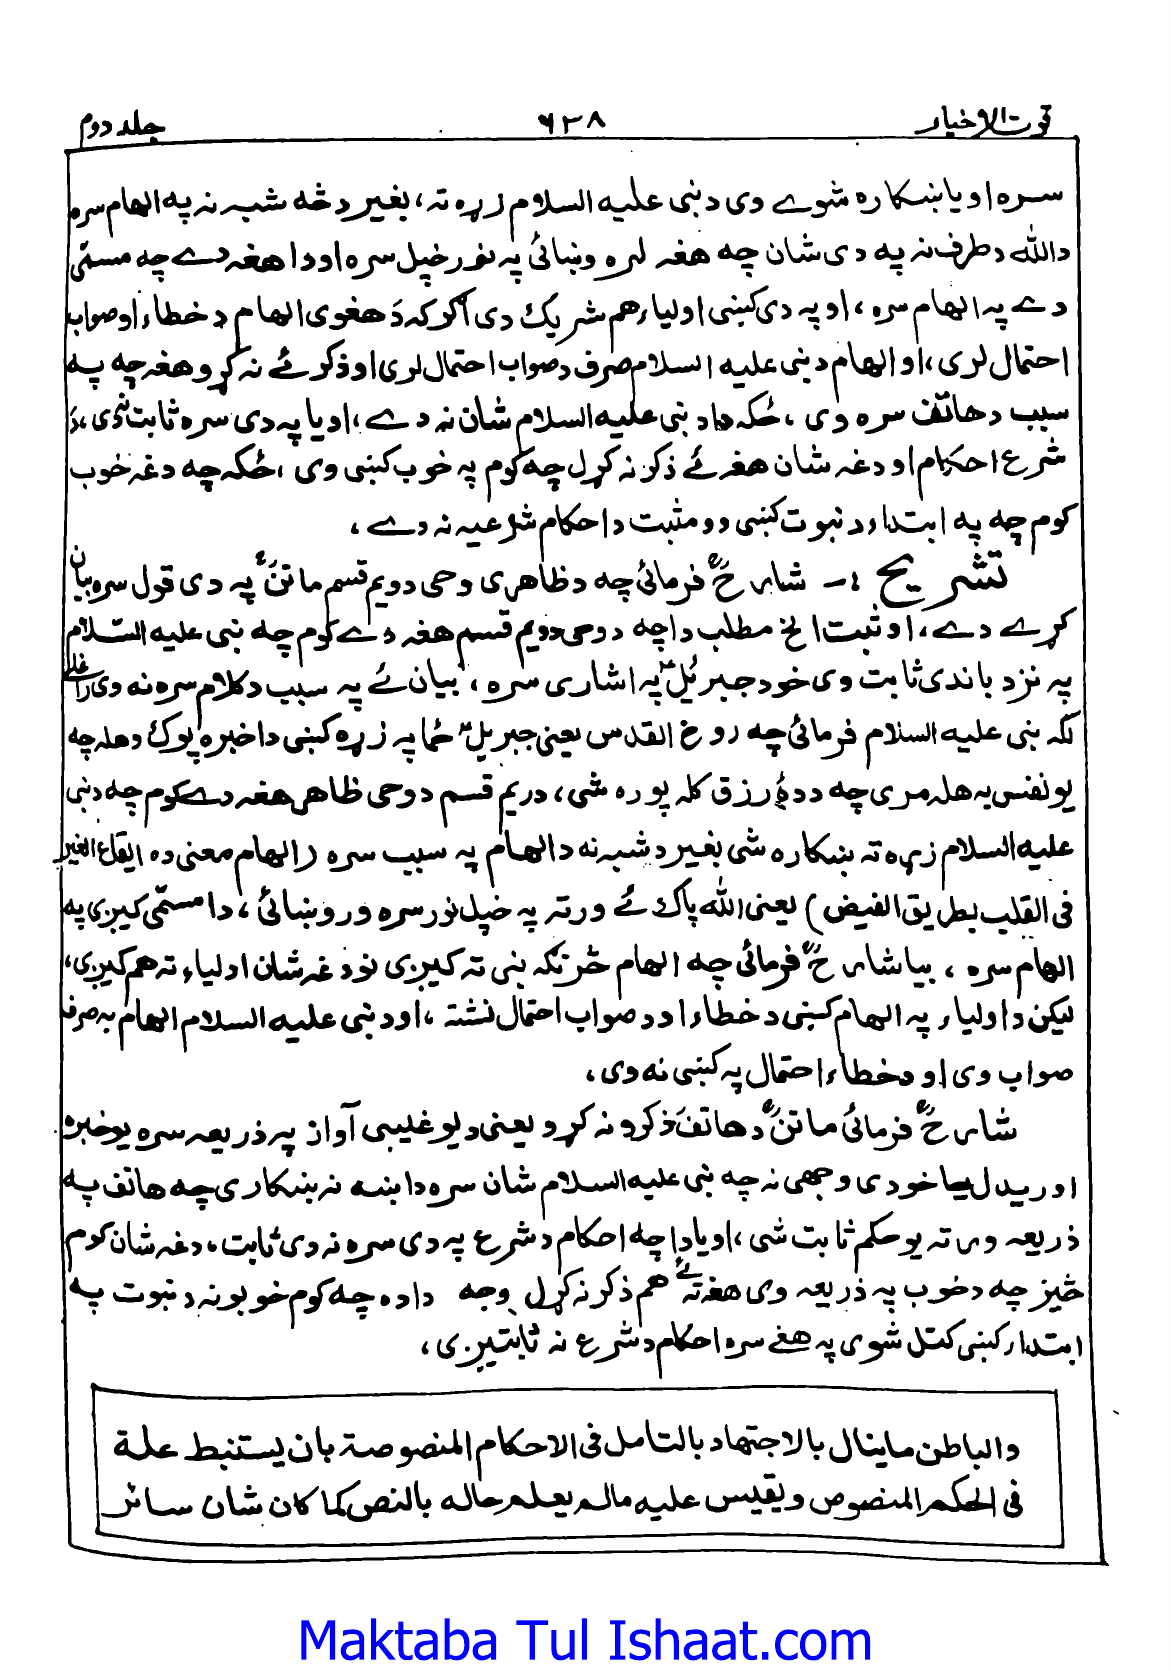 قوت الاخیار ۶۳۸ جلد دوم
سره او یا ښکاره شوے وی د نبی علیه السلام زړه ته، بغیر د څه شبہ نه په الهام سره
د الله د طرف نه په دی شان چه هغه لره وښائی په نور خپل سره او دا هغه دے چه مسمّٰی
دے په الهام سره، او په دی کښی اولیاء هم شریک دی اگر که دَ هغوی الهام د خطاء او صواب
احتمال لری، او الهام د نبی علیه السلام صرف د صواب احتمال لری او ذکر ئے نه کړو هغه چه په
سبب د هاتف سره وی، ځکه دا د نبی علیه السلام شان نه دے، او یا په دی سره ثابت ندی، دَ
شرع احکام او دغه شان هغه ئے ذکر نه کړل چه کوم په خوب کښی وی، ځکه چه دغه خوب
کوم چه په ابتداء د نبوت کښی وو مثبت د احکام شرعیه نه دے،
تشریح :- شارح فرمائی چه د ظاهری وحی دویم قسم ماتن په دی قول سره بیان
کړے دے، او ثبت الخ مطلب دا چه د وحی دویم قسم هغه دے کوم چه نبی علیه السّلام
په نزد باندی ثابت وی خو د جبرئیل په اشاری سره، بیان ئے په سبب د کلام سره نه وی راغلے
لکه نبی علیه السلام فرمائی چه روح القدس یعنی جبریل ځما په زړه کښی دا خبره پوک وهله چه
یو نفس به هله مری چه د دهٔ رزق کله پوره شی، دریم قسم د وحی ظاهر هغه دے کوم چه د نبی
علیه السلام زړه ته ښکاره شی بغیر د شبه نه د الهام په سبب سره (الهام معنی ده القاء الخیر
فی القلب بطریق الفیض) یعنی الله پاک ئے ورته په خپل نور سره وروښائی، دا مسمّٰی کیږی په
الهام سره، بیا شارح فرمائی چه الهام څرنګه نبی ته کیږی نو دغه شان اولیاء ته هم کیږی،
لیکن د اولیاء په الهام کښی د خطاء او د صواب احتمال نشته، او د نبی علیه السلام الهام به صرف
صواب وی او د خطاء احتمال په کښی نه وی،
شارح فرمائی ماتن د هاتف ذکر و نه کړو یعنی د یو غیبی آواز په ذریعه سره یو خبره
اوریدل خو دی وجهی نه چه نبی علیه السلام شان سره دا ښه نه ښکاری چه هاتف په
ذریعه ورته یو حکم ثابت شی، او یا دا چه احکام د شرع په دی سره نه دی ثابت، دغه شان کوم
څیز چه د خوب په ذریعه وی هغه ته ئے هم ذکر نه کړل وجه دا ده چه کوم خوبونه د نبوت په
ابتداء کښی کتل شوی په هغے سره احکام د شرع نه ثابتیږی،
والباطن ماینال بالاجتهاد بالتامل فی الاحکام المنصوصة بان یستنبط علة
فی الحکم المنصوص ویقیس علیه مالم یعلم حاله بالنص کما کان شان سائر
Maktaba Tul Ishaat.com